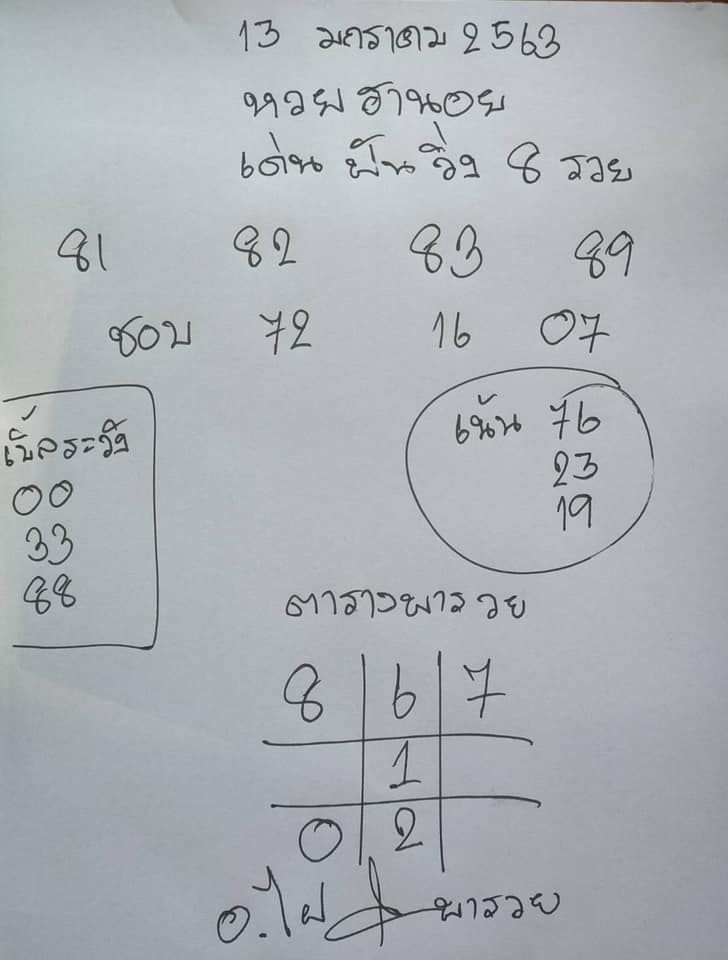 13 มกราคม 2563
หวย ฮานอย
เด่น ฟันวิ่ง 8 รวย
81 82 83 89
ชอบ 72 16 07
เบิ้ลระวัง
00
33
88
เน้น 76
23
19
ตารางพารวย
8 6 7
1
0 2
อ.ไผ่ พารวย